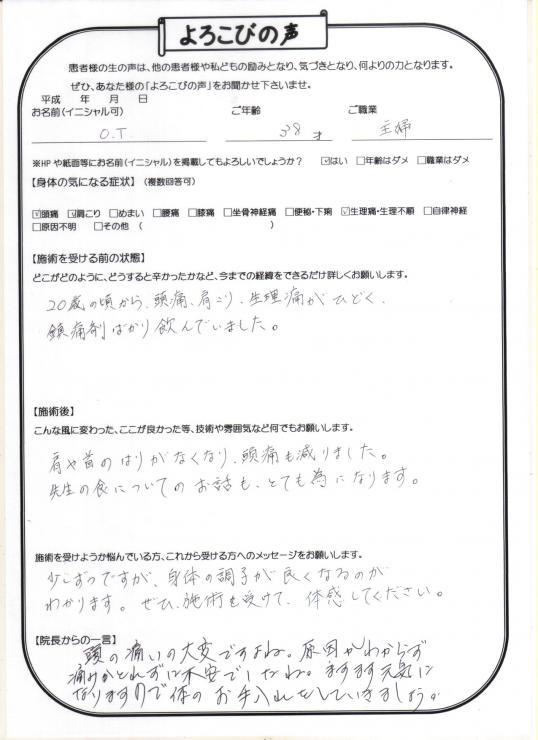 よろこびの声
患者様の生の声は、他の患者様や私どもの励みとなり、気づきとなり、何よりの力となります。
ぜひ、あなた様の「よろこびの声」をお聞かせ下さいませ。
平成 年 月 日
お名前(イニシャル可) ご年齢 ご職業
O.T 38 才 主婦
※HPや紙面等にお名前(イニシャル)を掲載してもよろしいでしょうか? ☑はい □年齢はダメ □職業はダメ
【身体の気になる症状】(複数回答可)
☑頭痛 ☑肩こり □めまい □腰痛 □膝痛 □坐骨神経痛 □便秘・下痢 ☑生理痛・生理不順 □自律神経
□原因不明 □その他 ( )
【施術を受ける前の状態】
どこがどのように、どうすると辛かったかなど、今までの経緯をできるだけ詳しくお願いします。
20歳の頃から、頭痛、肩こり、生理痛がひどく、
鎮痛剤ばかり飲んでいました。
【施術後】
こんな風に変わった、ここが良かった等、技術や雰囲気など何でもお願いします。
肩や首のはりがなくなり、頭痛も減りました。
先生の食についてのお話も、とても為になります。
施術を受けようか悩んでいる方、これから受ける方へのメッセージをお願いします。
少しずつですが、身体の調子が良くなるのが
わかります。ぜひ、施術を受けて、体感してください。
【院長からの一言】
頭の痛いの大変ですよね。原因がわからず
痛みがとれずに不安でしたね。ますます元気に
なりますので体のお手入れをしていきましょう。